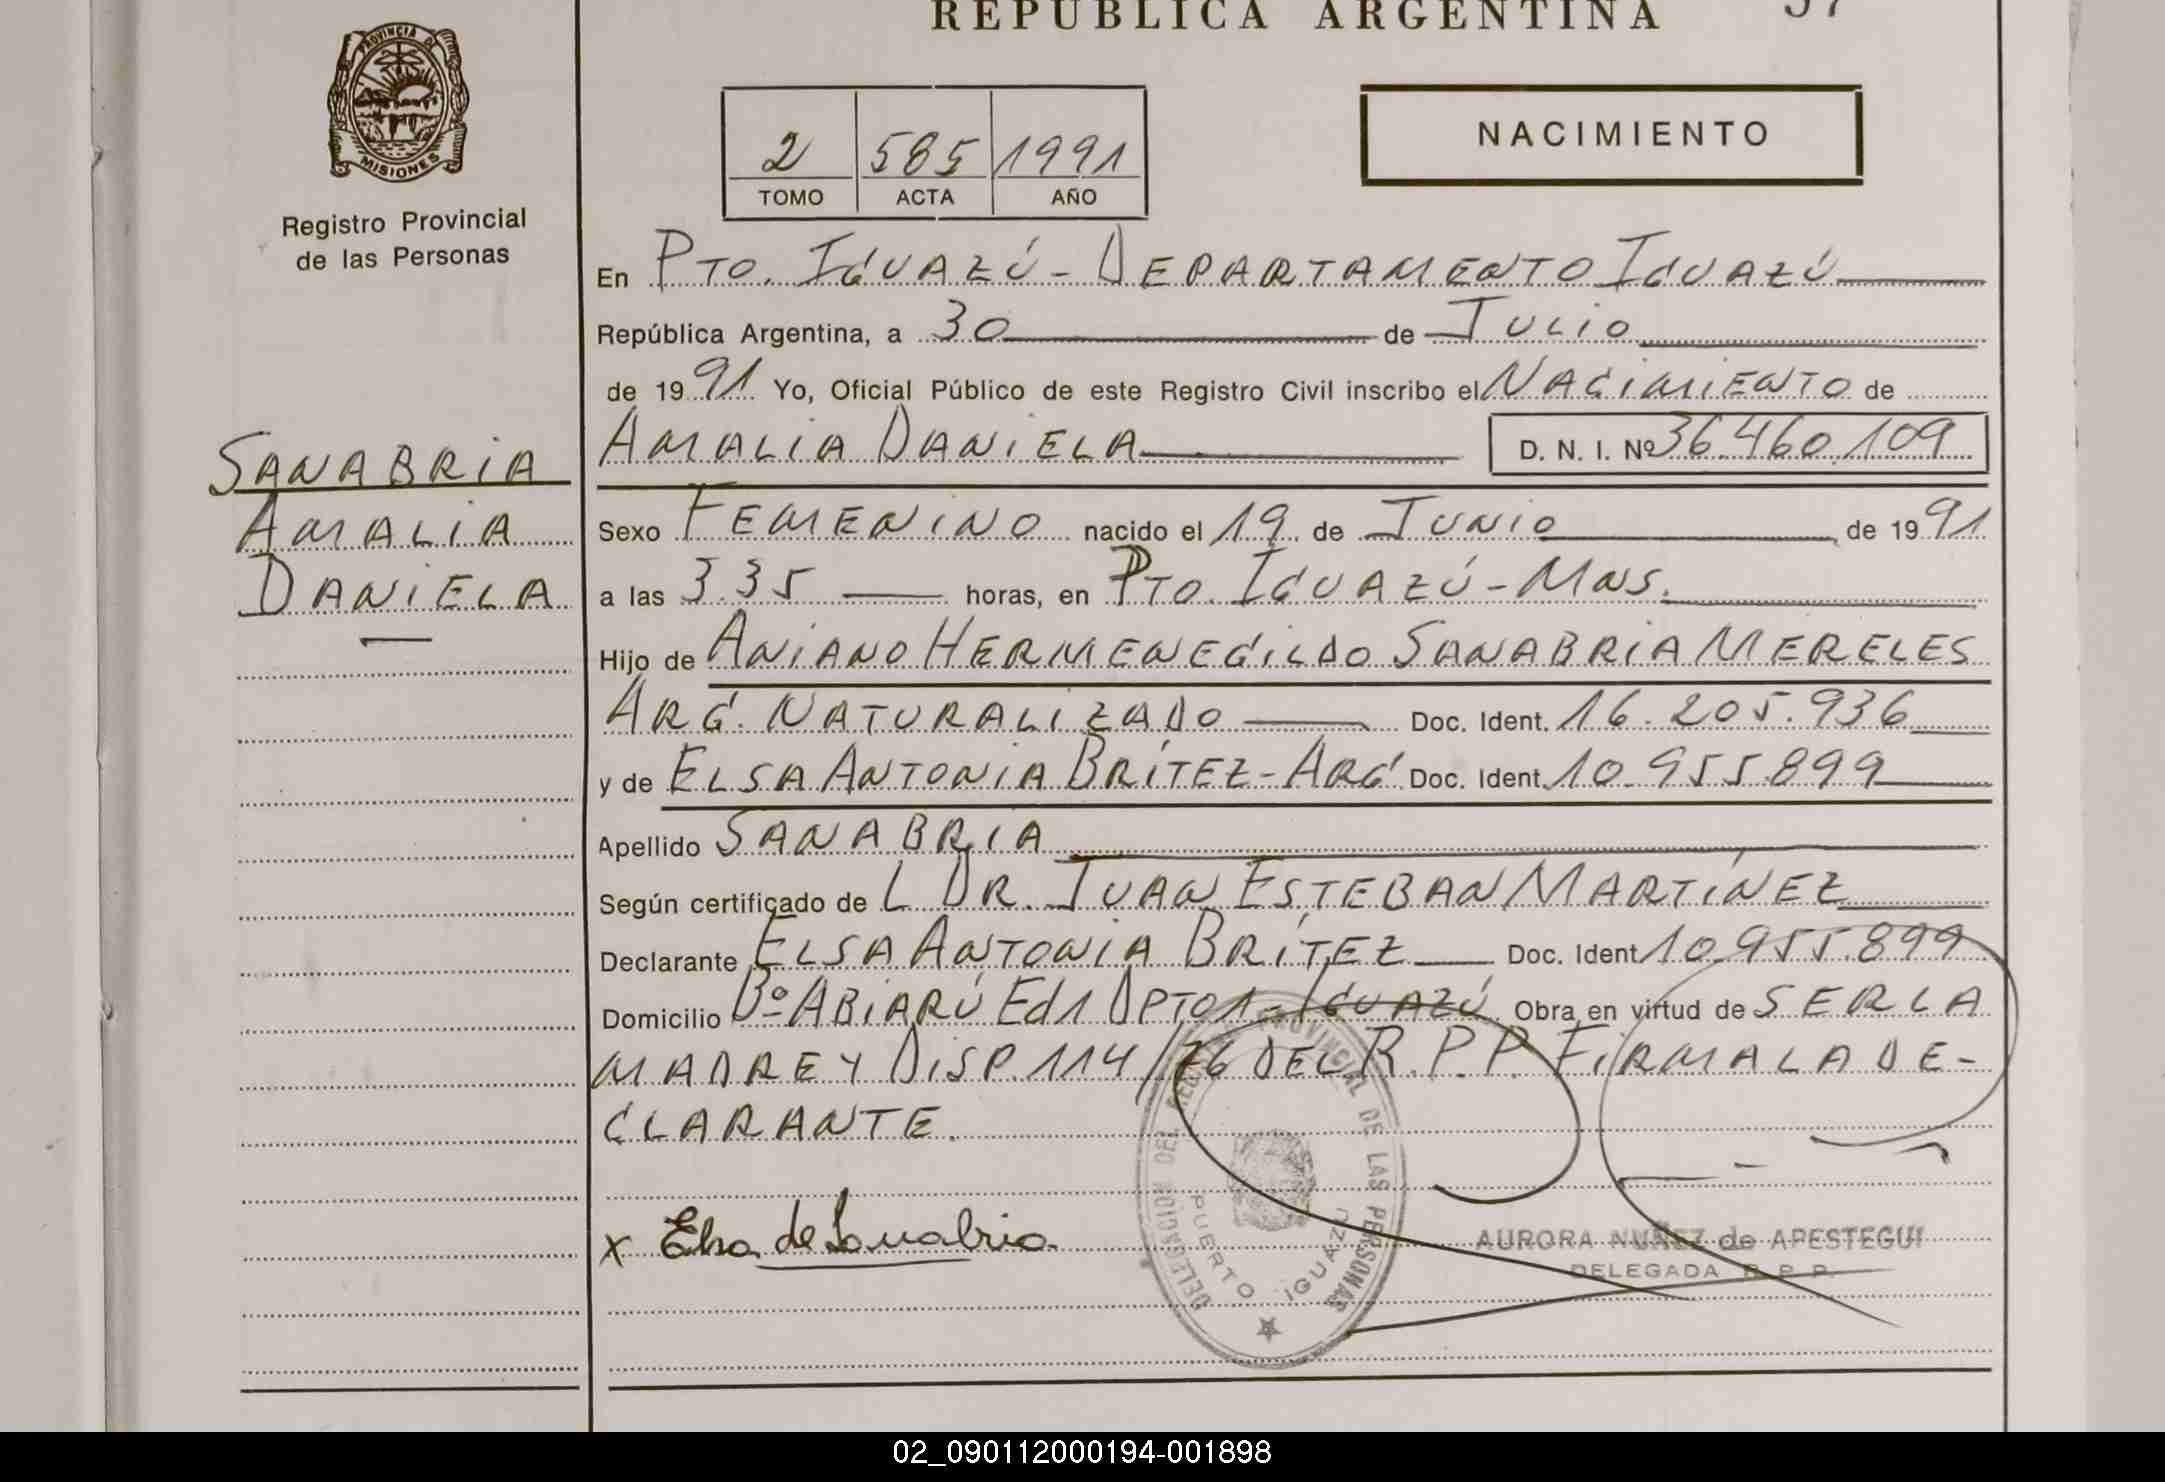 REPUBLICA ARGENTINA 57
PROVINCIA DE
MISIONES
Registro Provincial
de las Personas
2 585 1991
TOMO ACTA AÑO
NACIMIENTO
En PTO. IGUAZÚ - DEPARTAMENTO IGUAZÚ
República Argentina, a 30 de JULIO
de 1991 Yo, Oficial Público de este Registro Civil inscribo el NACIMIENTO de
AMALIA DANIELA D. N. I. Nº 36.460.109
SANABRIA
AMALIA
DANIELA
Sexo FEMENINO nacido el 19 de JUNIO de 1991
a las 3.35 horas, en PTO. IGUAZÚ - MNS.
Hijo de ANIANO HERMENEGILDO SANABRIA MERELES
ARG. NATURALIZADO Doc. Ident. 16.205.936
y de ELSA ANTONIA BRÍTEZ - ARG. Doc. Ident. 10.955.899
Apellido SANABRIA
Según certificado de L DR. JUAN ESTEBAN MARTÍNEZ
Declarante ELSA ANTONIA BRÍTEZ Doc. Ident 10.955.899
Domicilio Bº ABIARÚ Ed 1 DPTO 1 - IGUAZÚ. Obra en virtud de SER LA
MADRE Y DISP. 114/76 DEL R.P.P. FIRMA LA DE-
CLARANTE.
x Elsa de Sanabria
DELEGACION DEL REGISTRO PROVINCIAL DE LAS PERSONAS
PUERTO IGUAZU
AURORA NUÑEZ de APESTEGUI
DELEGADA R. P. P.
02_090112000194-001898